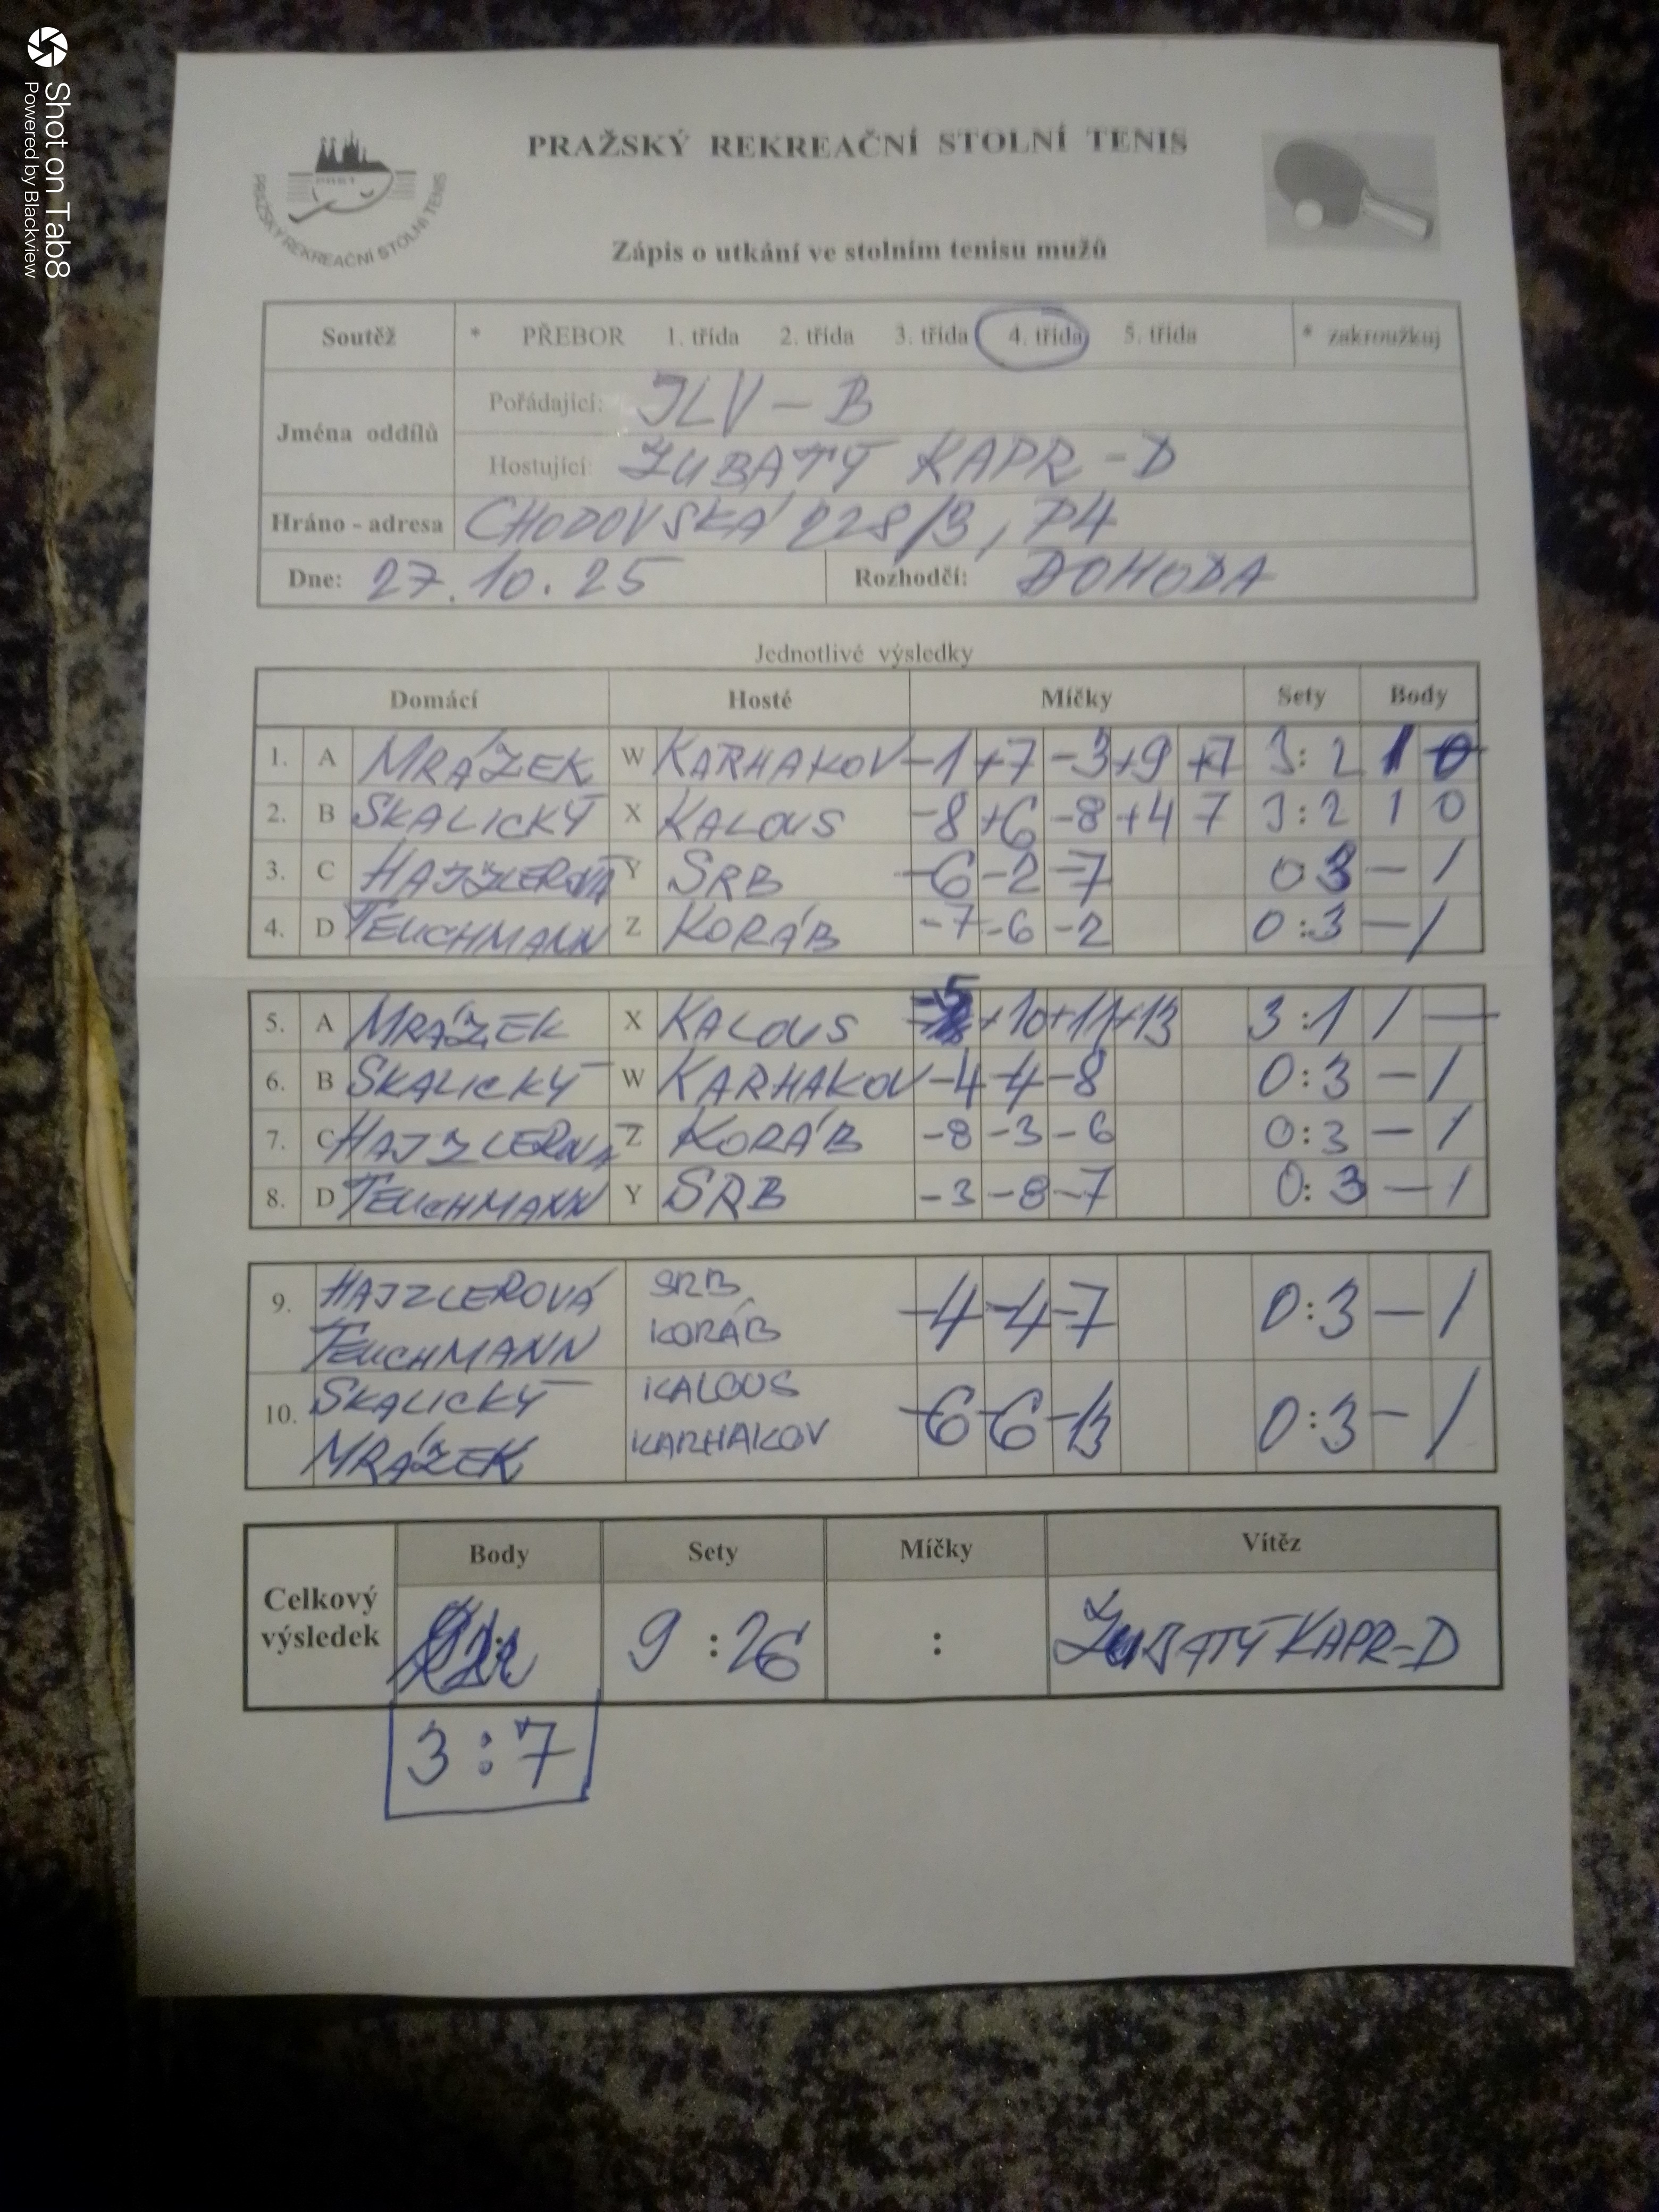 Shot on Tab8
Powered by Blackview
PRAŽSKÝ REKREAČNÍ STOLNÍ TENIS
PRAŽSKÝ REKREAČNÍ STOLNÍ TENIS
Zápis o utkání ve stolním tenisu mužů
Soutěž * PŘEBOR 1. třída 2. třída 3. třída 4. třída 5. třída * zakroužkuj
Jména oddílů
Pořádající: JLV - B
Hostující: ZUBATÝ KAPR - D
Hráno - adresa CHODOVSKÁ 228/3, P4
Dne: 27.10.25 Rozhodčí: DOHODA
Jednotlivé výsledky
Domácí Hosté Míčky Sety Body
1. A MRÁZEK W KARHAKOV -1 +7 -3 +9 +7 3:2 1 0
2. B SKALICKÝ X KALOUS -8 +6 -8 +4 7 3:2 1 0
3. C HAJZLEROVÁ Y SRB -6 -2 -7 0 3 - 1
4. D TEUCHMANN Z KORÁB -7 -6 -2 0:3 - 1
5. A MRÁZEK X KALOUS -5 +10 +11 +13 3:1 1 -
6. B SKALICKÝ W KARHAKOV -4 -4 -8 0:3 - 1
7. C HAJZLEROVÁ Z KORÁB -8 -3 -6 0:3 - 1
8. D TEUCHMANN Y SRB -3 -8 -7 0:3 - 1
9. HAJZLEROVÁ SRB -4 -4 -7 0:3 - 1
TEUCHMANN KORÁB
10. SKALICKÝ KALOUS -6 -6 -13 0:3 - 1
MRÁZEK KARHAKOV
Celkový výsledek
Body Sety Míčky Vítěz
9 : 26 : ZUBATÝ KAPR-D
3:7